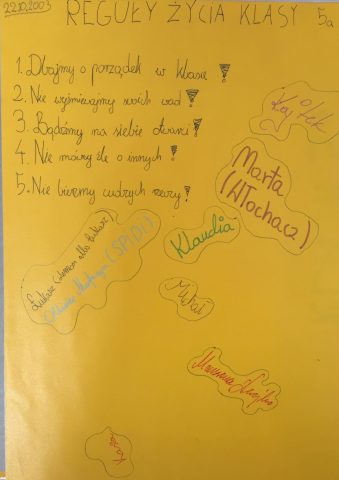 22.10.2003
REGUŁY ŻYCIA KLASY 5a
1. Dbajmy o porządek w klasie !
2. Nie wyśmiewajmy swoich wad !
3. Bądźmy na siebie otwarci !
4. Nie mówmy źle o innych !
5. Nie bierzmy cudzych rzeczy !
Marta
(Włochacz)
Klaudia
(SPIDI)
Marzena